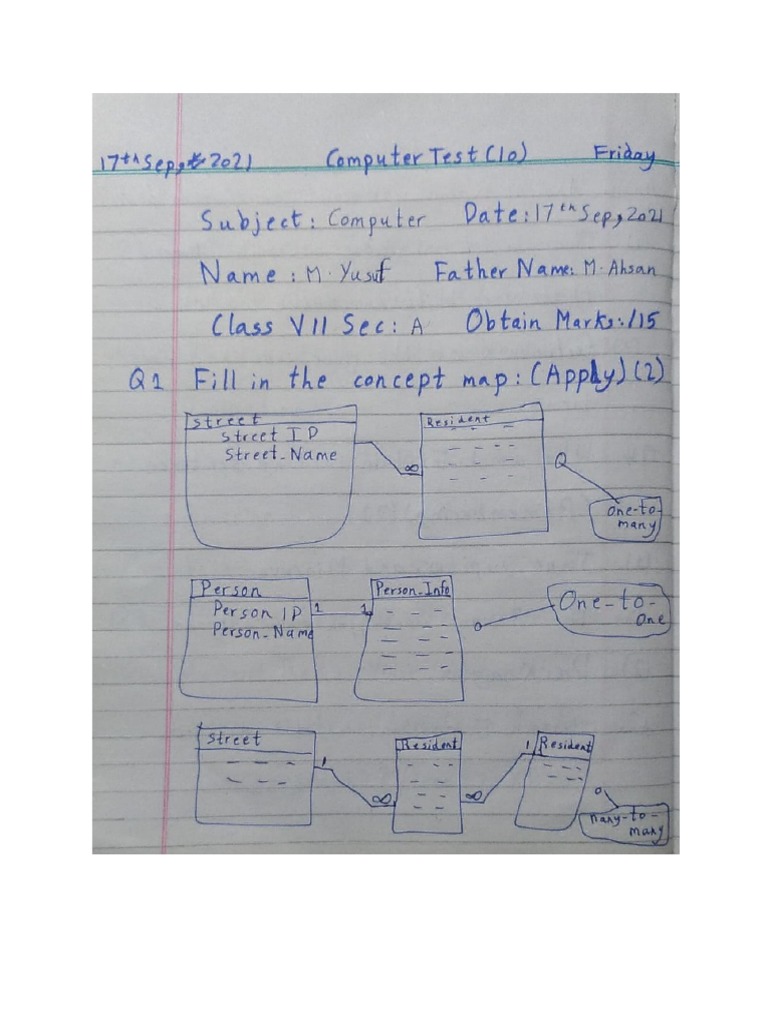 17th Sep, 2021 Computer Test (10) Friday
Subject: Computer Date: 17th Sep, 2021
Name: M. Yusuf Father Name: M. Ahsan
Class VII Sec: A Obtain Marks: /15
Q1 Fill in the concept map: (Apply) (2)
Street
Street ID
Street_Name
∞
Resident
One-to-
many
Person
Person ID
Person_Name
1 1
Person_Info
One-to-
One
Street
1 ∞
Resident
∞ 1
Resident
many-to-
many